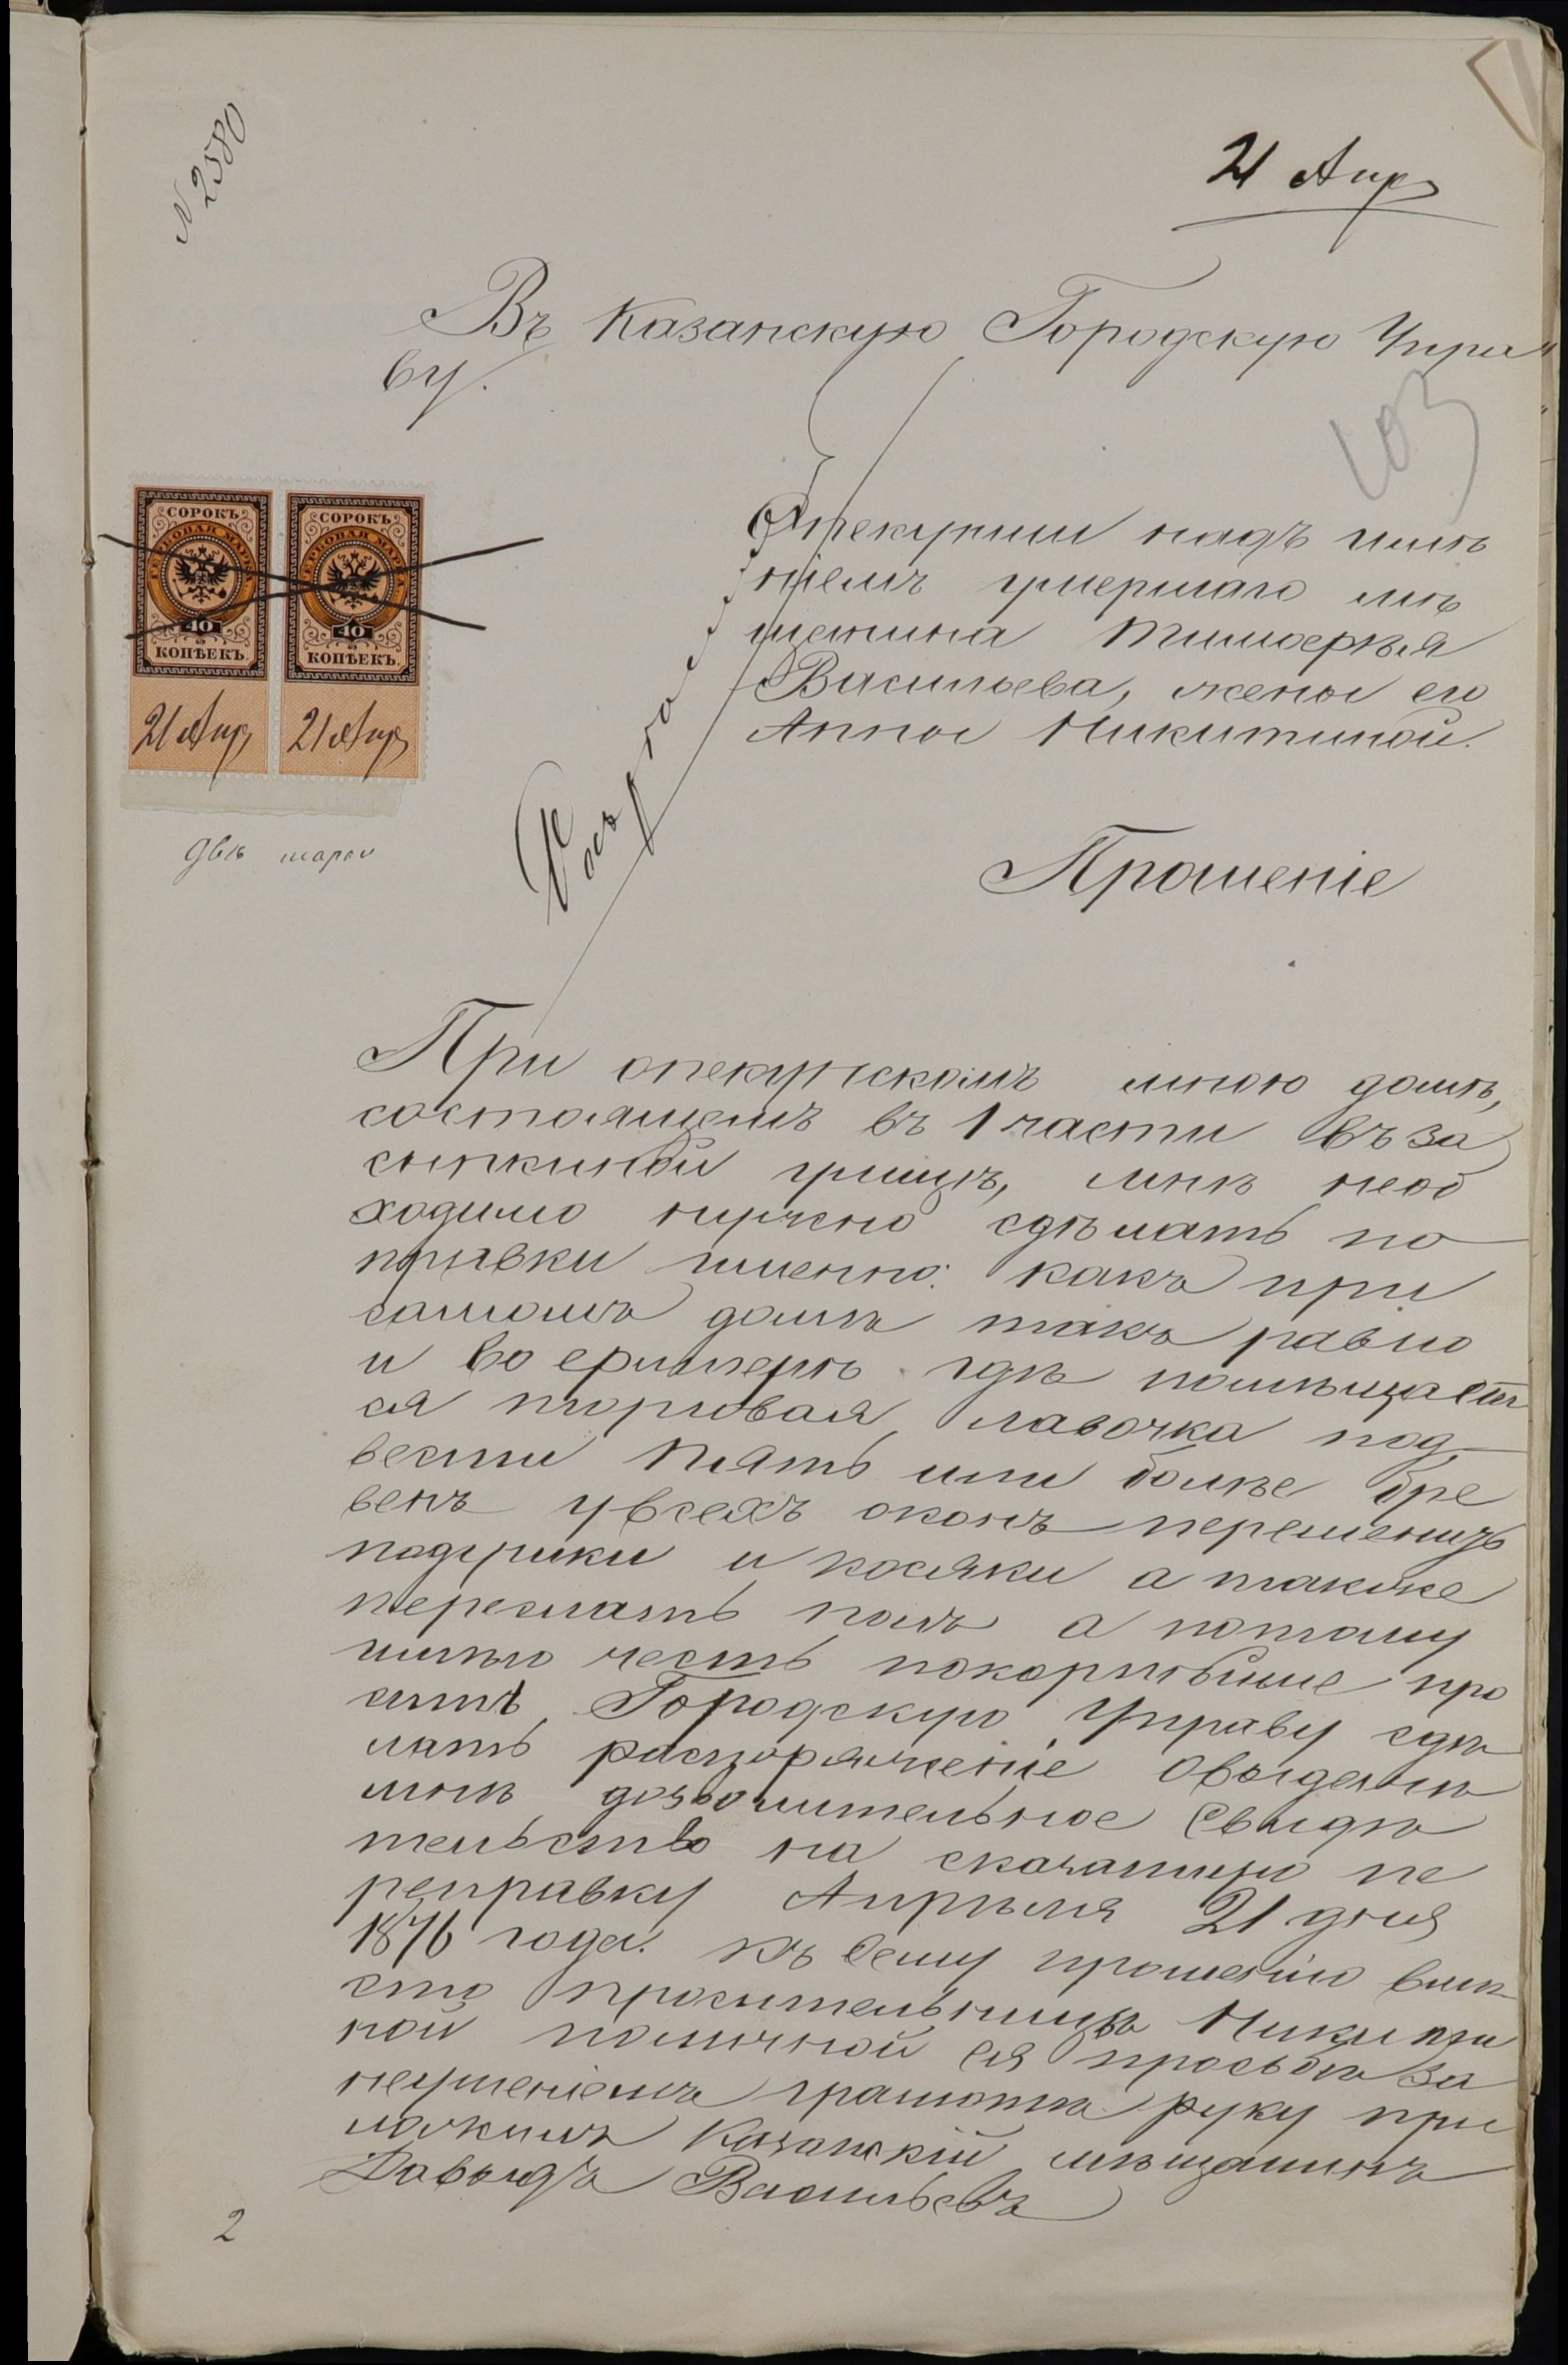 N 2580
21 Апр
Въ Казанскую Городскую Упра
ву.
103
Опекунши надъ имѣ
ніемъ умершаго мѣ
щанина Тимофѣя
Васильева, жены его
Анны Никитиной.
СОРОКЪ
ГЕРБОВАЯ МАРКА
40
КОПѢЕКЪ.
21 Апр
СОРОКЪ
ГЕРБОВАЯ МАРКА
40
КОПѢЕКЪ.
21 Апр
двѣ марки
Прошеніе
При опекунскомъ мною домѣ,
состоящемъ въ 1 части въ За
сыпкиной улицѣ, мнѣ необ
ходимо нужно сдѣлать по
правки именно: какъ при
самомъ домѣ такъ равно
и во флигерѣ гдѣ помѣщает
ся торговая лавочка под
вести Пять или болѣе бре
венъ увсехъ оконъ перемѣнить
подушки и косяки а также
переслать полъ а потому
имѣю честь покорнѣйше про
сить Городскую Управу сдѣ
лать распоряженіе Овыдачи
мнѣ дозволительное Свидѣ
тельство на сказанную пе
реправку Апрѣля 21 дня
1876 года. Къ Сему прошенію вмѣ
сто просительницы Никити
ной поличной ея просьбѣ за
неумѣніемъ грамотѣ руку при
ложилъ Казанскій мѣщанинъ
Давыдъ Васильевъ
2